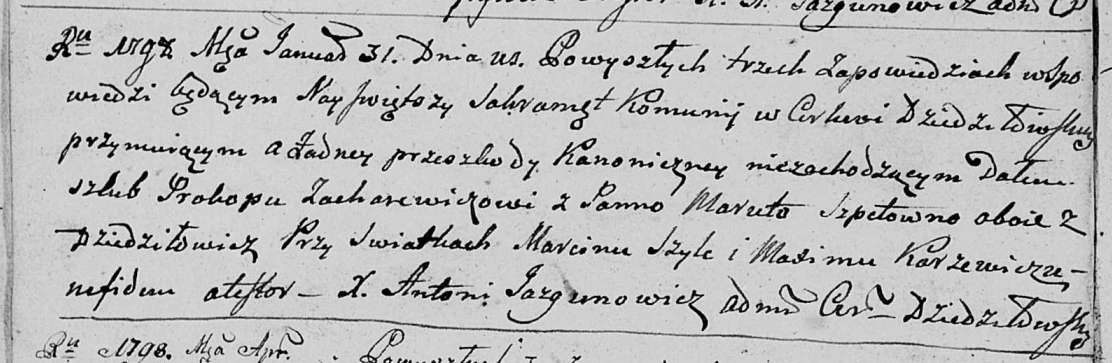 Jazgunowicz adm
Ru 1798 Mca Januar 31. Dnia us. Powyszłych trzech zapowiedziach w Spo
wiedzi będącym Nayświętszy Sakrament Komunij w Cerkwi Dziedziłowskiey
przymuiącym a Żadney przeszkody Kanoniczney niezachodzącym Dałem
szlub Prokopu Zacharewiczowi z Panno Maruto Szpetowno oboie z
Dziedziłowicz Przy Swiatkach Marcinu Szyle i Maximu Karzewiczu –
nefidem atestor – X. Antoni Jazgunowicz adm Cer. Dziedziłowskiey
Ru 1798. Mca Apr.